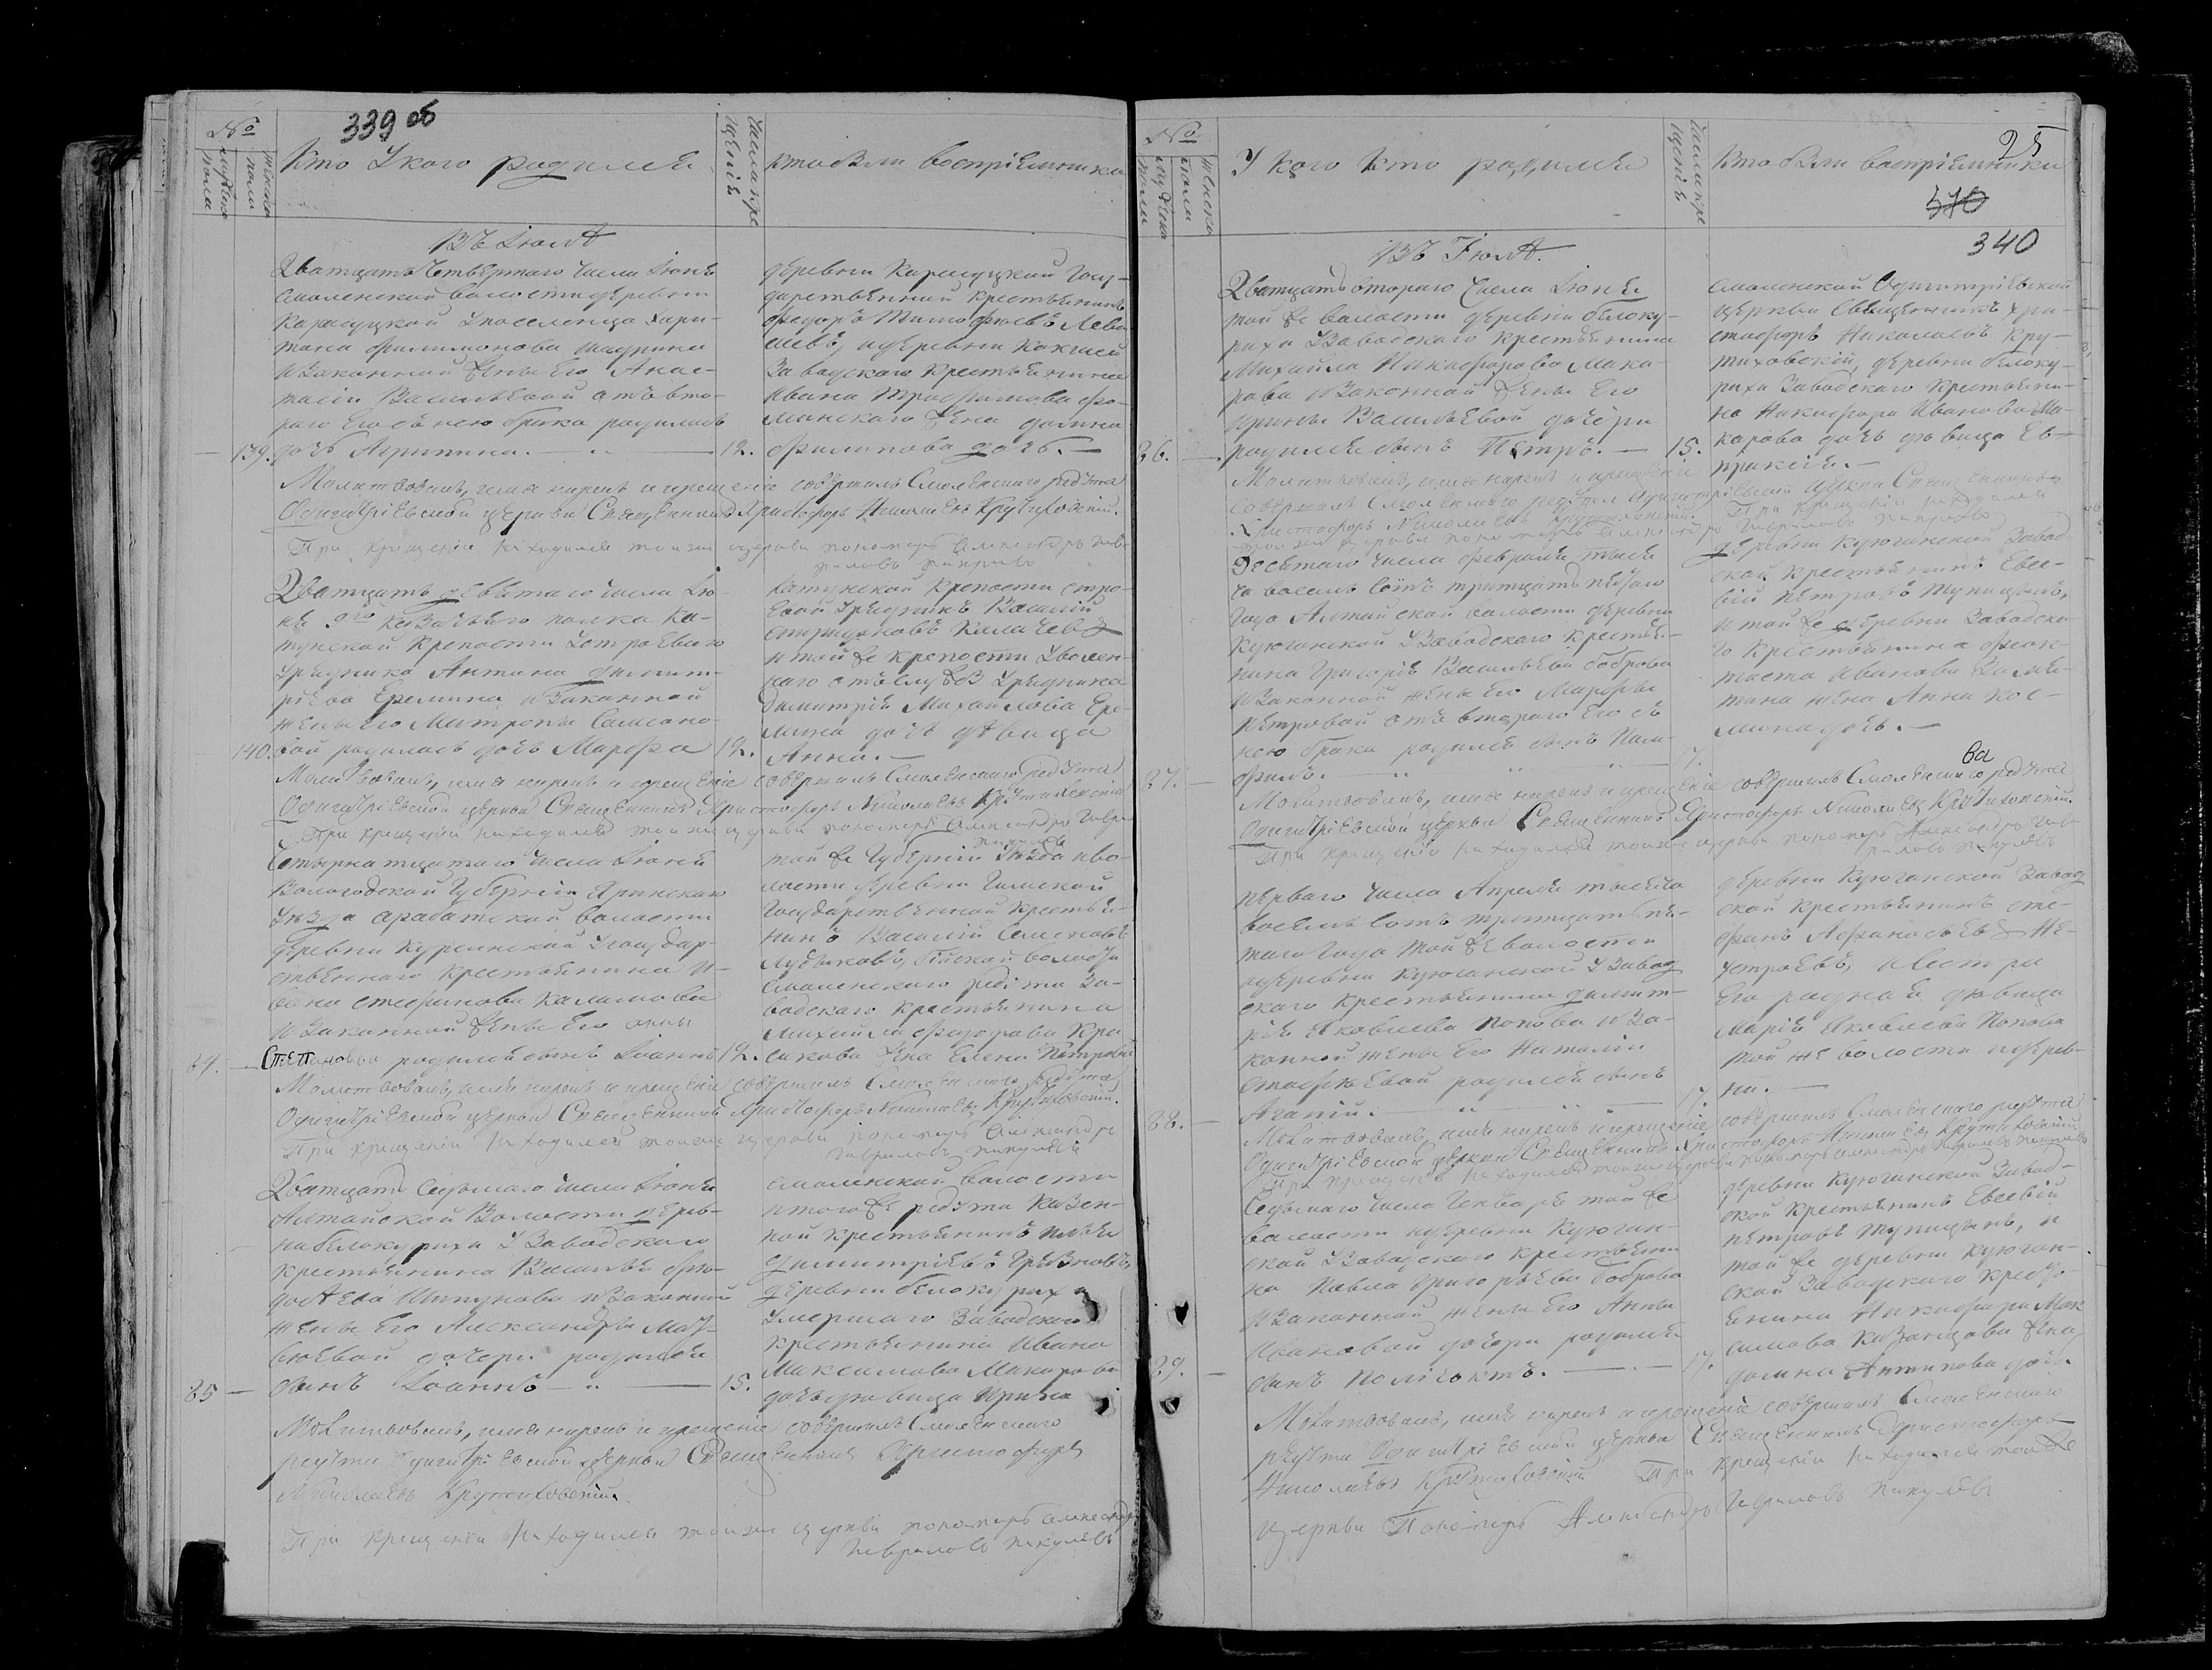 339 об
№
мужеска пола
женска пола
Кто Укого родился
Число крещенiя
кто были воспрiемники
Въ Iюлѣ
Дватцать Четвертаго числа Iюня
Смоленской волости деревни
Карагуцкой Упоселенца Хари-
тона Филимонова
и Законной жены его Анас-
тасiи Васильевой отъ вто-
раго Его съ нею брака родилась
139. дочь Агрипина. 12.
деревни Карагуцкой Госу-
дарственной крестьянинъ
Федоръ Тимофѣевъ
и деревни
Заводского крестьянина
Ивана Трофимова Фо-
минскаго жена Домна
Филипова дочь.
Молитвовалъ, имя нарекъ и крещенiе совершилъ Смоленскаго редута
Одигитрiевской церкви Священникъ Христофоръ Николаевъ Крутиховскiй.
При крещенiи находился тойже церкви пономарь Александръ Гав-
риловъ
Дватцать девятаго числа Iю-
ня 9го казачьяго полка Ка-
тунской крепости Устроеваго
Урядника Антипа Димит-
рiева Еремина, и Законной
жены его Матроны Самсоно-
140. вой родилась дочь Марфа 12.
Катунской крепости стро-
евой Урядникъ Василiй
Спиридоновъ Калачевъ
и той же крепости Уволен-
наго отъ службы Урядника
Димитрiя Михайлова Ере-
мина дочь девица
Анна.
Молитвовалъ, имя нарекъ и крещенiе совершилъ Смоленскаго редута
Одигитрiевской церкви Священникъ Христофоръ Николаевъ Крутиховскiй
При крещенiи находился тойже церкви пономарь Александръ Гаври-
Четырнатцатаго числа Iюня
Вологодской Губернiи Яринскаго
Уезда волости
деревни Угосудар-
ственнаго крестьянина И-
вана Стефанова Каламова
и Законной жены его Анны
84. Степановой родился сынъ Iоаннъ 12.
той же Губернiи Уезда и во-
лости деревни
Государственной крестья-
нинъ Василiй Семеновъ
Бiйской волости
Смоленскаго редута За-
водскаго крестьянина
Михайла Федорова Кра-
силова жена Елена Петрова
Молитвовалъ, имя нарекъ и крещенiе совершилъ Смоленскаго редута
Одигитрiевской церкви Священникъ Христофоръ Николаевъ Крутиховскiй.
При крещенiи находился тойже церкви пономарь Александръ
Гавриловъ
Дватцать седьмаго числа Iюня
Алтайской Волости дерев-
ни Белокурихи У Заводскаго
крестьянина Василья Фо-
дотева Шипунова и Законной
жены Его Александры Мат-
веевой дочери родился
85 сынъ Iоаннъ 15.
Смоленской волости
и тогоже редута Казен-
ной крестьянинъ
Димитрiевъ Грязновъ,
деревни Белокурихи
Умершаго Заводскаго
крестьянина Ивана
Максимова Макарова
дочь девица Ирина
Молитвовалъ, имя нарекъ и крещенiе совершилъ Смоленскаго
редута Одигитрiевской церкви Священникъ Христофоръ
Николаевъ Крутиховскiй.
При крещенiи находился тойже церкви пономарь Александръ
Гавриловъ
№
мужеска пола
женска пола
У кого кто родился
Число крещенiя
Кто были воспрiемники
25
570
340
Въ Iюлѣ.
Двадцать втораго числа Iюня
той же волости деревни Белоку-
рихи У Заводскаго крестьянина
Михайла Никифорова Мака-
рова и Законной жены Его
Ирины Васильевой дочери
86. родился сынъ Петръ. 15.
Смоленской Одигитрiевской
церкви Священникъ Хри-
стофоръ Николаевъ Кру-
тиховскiй, деревни Белоку-
рихи Заводскаго крестьяни-
на Никифора Иванова Ма-
карова дочь девица Ев-
праксiя.
Молитвовалъ, имя нарекъ и крещенiе
совершилъ Смоленскаго редута Одигитрiевской церкви Священникъ
Христофоръ Николаевъ Крутиховскiй. При крещенiи находился
тойже церкви пономарь Александръ Гавриловъ
Десятаго числа Февраля тысяча
восемь сотъ тритцать пятаго
года Алтайской волости деревни
Куюганской У Заводскаго крестья-
нина Григорiя Васильева Боброва
и Законной жены Его Марфы
Петровой отъ втораго Его съ
нею брака родился сынъ Пам-
87. филъ. 17.
деревни Куюганской Завод-
ской крестьянинъ Евсе-
вiй Петровъ Тупицынъ,
и той же деревни Заводска-
го крестьянина Феок-
тиста Иванова
жена Анна Кос-
мина дочь.
ва
Молитвовалъ, имя нарекъ и крещенiе совершилъ Смоленскаго редута
Одигитрiевской церкви Священникъ Христофоръ Николаевъ Крутиховскiй.
При крещенiи находился тойже церкви пономарь Александръ Гав-
риловъ
перваго числа Апреля тысяча
восемь сотъ тритцать пя-
таго года той же волости
и деревни Куюганской У Завод
скаго крестьянина Димит-
рiя Яковлева Попова и За-
конной жены Его Наталiи
Стафѣевой родился сынъ
88. Агапiй. 17.
деревни Куюганской Завод
ской крестьянинъ Сте-
фанъ Афанасьевъ Не-
устроевъ, и сестра
Его родная девица
Марiя Яковлева Попова
той же волости и дерев-
ни.
Молитвовалъ, имя нарекъ и крещенiе совершилъ Смоленскаго редута
Одигитрiевской церкви Священникъ Христофоръ Николаевъ Крутиховскiй
При крещенiи находился тойже церкви пономарь Александръ Гавриловъ
Седьмаго числа Генваря той же
волости и деревни Куюган-
ской У Заводскаго крестьяни
на Павла Григорьева Боброва
и Законной жены Его Анны
Ивановой дочери родился
89. сынъ Полiектъ. 17.
деревни Куюганской Завод-
ской крестьянинъ Евсевiй
Петровъ Тупицынъ, и
той же деревни Куюган-
ской Заводскаго кресть-
янина Никифора Мак
симова Казанцова жена
Домна Антипова дочь.
Молитвовалъ, имя нарекъ и крещенiе совершилъ Смоленскаго
редута Одигитрiевской церкви Священникъ Христофоръ
Николаевъ Крутиховскiй При крещенiи находился тойже
церкви Пономарь Александръ Гавриловъ